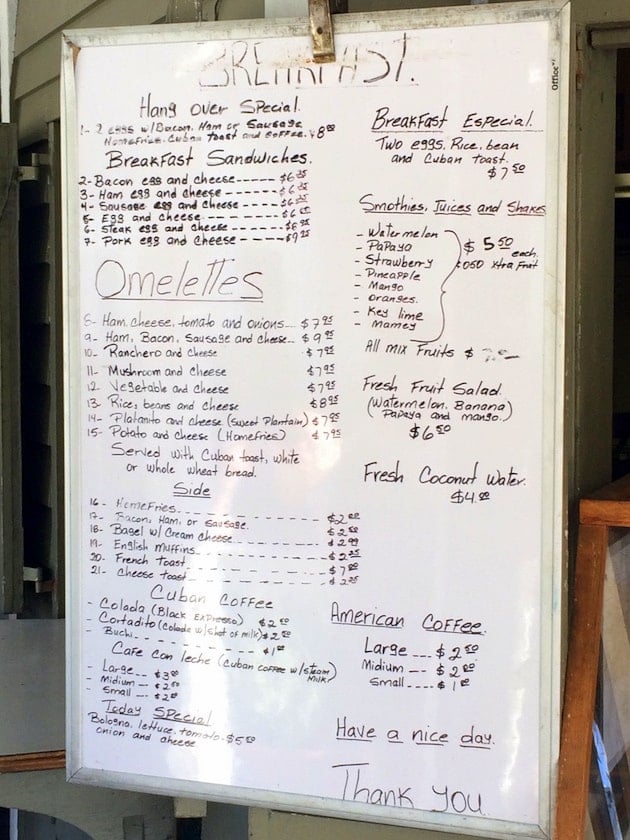 BREAKFAST.
Office
Hang Over Special.
1- 2 eggs w/Bacon, Ham or Sausage
Homefries. Cuban toast and coffee. $8⁰⁰
Breakfast Sandwiches.
2- Bacon egg and cheese-----
3- Ham egg and cheese-----
4- Sausage egg and cheese----
5- Egg and cheese-----
6- Steak egg and cheese----
7- Pork egg and cheese----
Omelettes
8- Ham, cheese, tomato and onions... $7⁹⁵
9- Ham, Bacon, Sausage and cheese.. $9⁹⁵
10- Ranchero and cheese $7⁹⁵
11- Mushroom and cheese $7⁹⁵
12- Vegetable and cheese $7⁹⁵
13- Rice, beans and cheese $8⁹⁵
14- Platanito and cheese (Sweet Plantain) $7⁹⁵
15- Potato and cheese (Homefries) $7⁹⁵
Served with Cuban toast, white
or whole wheat bread.
Side
16- Homefries. $2⁰⁰
17- Bacon, Ham, or sausage. $2⁵⁰
18- Bagel w/ Cream cheese
19- English Muffins
20- French toast
21- Cheese toast
Cuban Coffee
- Colada (Black Expresso) $2⁵⁰
- Cortadito (Colada w/shot of milk) $2⁰⁰
- Buchi. - - - - - $1⁰⁰
Cafe con leche (Cuban coffee w/steam
Milk)
- Large ---- $3⁰⁰
- Midium --- $2⁵⁰
- Small ---- $2⁰⁰
Today Special
Bologna, lettuce, tomato,
onion and cheese $5⁰⁰
Breakfast Especial.
Two eggs. Rice, bean
and Cuban toast.
$7⁵⁰
Smothies, Juices and Shakes
- Watermelon
- Papaya
- Strawberry
- Pineapple
- Mango
- Oranges.
- Key lime
- Mamey
$5⁵⁰
each.
xtra fruit
All mix Fruits $
Fresh Fruit Salad.
(Watermelon, Banana)
Papaya and mango.
$6⁵⁰
Fresh Coconut Water.
$4⁰⁰
American Coffee.
Large --- $2⁵⁰
Midium -- $2⁰⁰
Small ---- $1⁰⁰
Have a nice day.
Thank you.